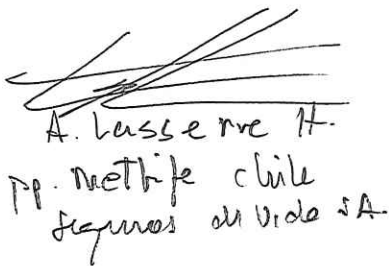 A. Lasserre H.
pp. Metlife chile
seguros de vida SA.